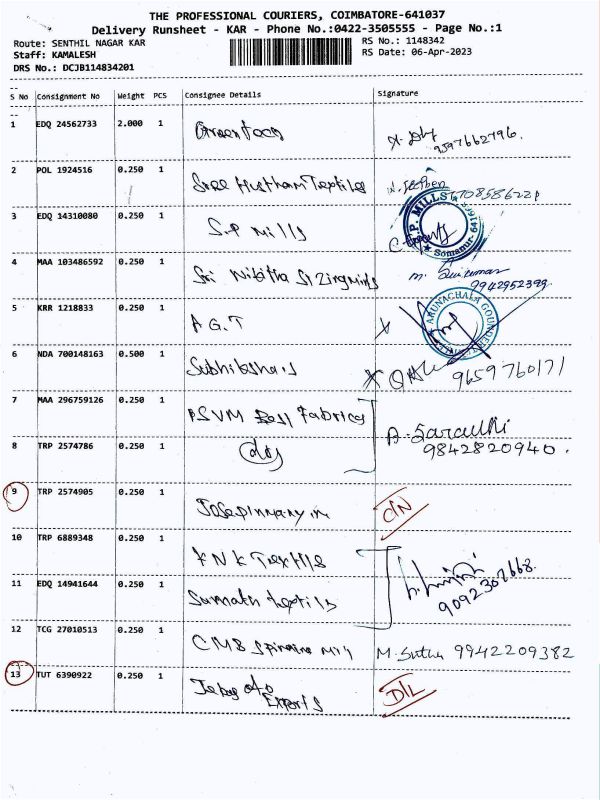 THE PROFESSIONAL COURIERS, COIMBATORE-641037
Delivery Runsheet - KAR - Phone No.:0422-3505555 - Page No.:1
Route: SENTHIL NAGAR KAR
RS No.: 1148342
Staff: KAMALESH
RS Date: 06-Apr-2023
DRS No.: DCJB114834201
S No Consignment No Weight PCS Consignee Details Signature
1 EDQ 24562733 2.000 1
9597662796.
2 POL 1924516 0.250 1 Sree Textiles
3 EDQ 14310080 0.250 1 S.P Mills
S.P. MILLS Somanur
4 MAA 103486592 0.250 1 Sri
9942952399
5 KRR 1218833 0.250 1 A G.T
ARUNACHALA GOUNDER
6 NDA 700148163 0.500 1
9659760171
7 MAA 296759126 0.250 1 PSVM Fabrics
8 TRP 2574786 0.250 1
9842820940.
9 TRP 2574905 0.250 1 C/N
10 TRP 6889348 0.250 1 K N K
11 EDQ 14941644 0.250 1
9092302668.
12 TCG 27010513 0.250 1 CMB Mill M. 9942209382
13 TUT 6390922 0.250 1 D/L
Exports